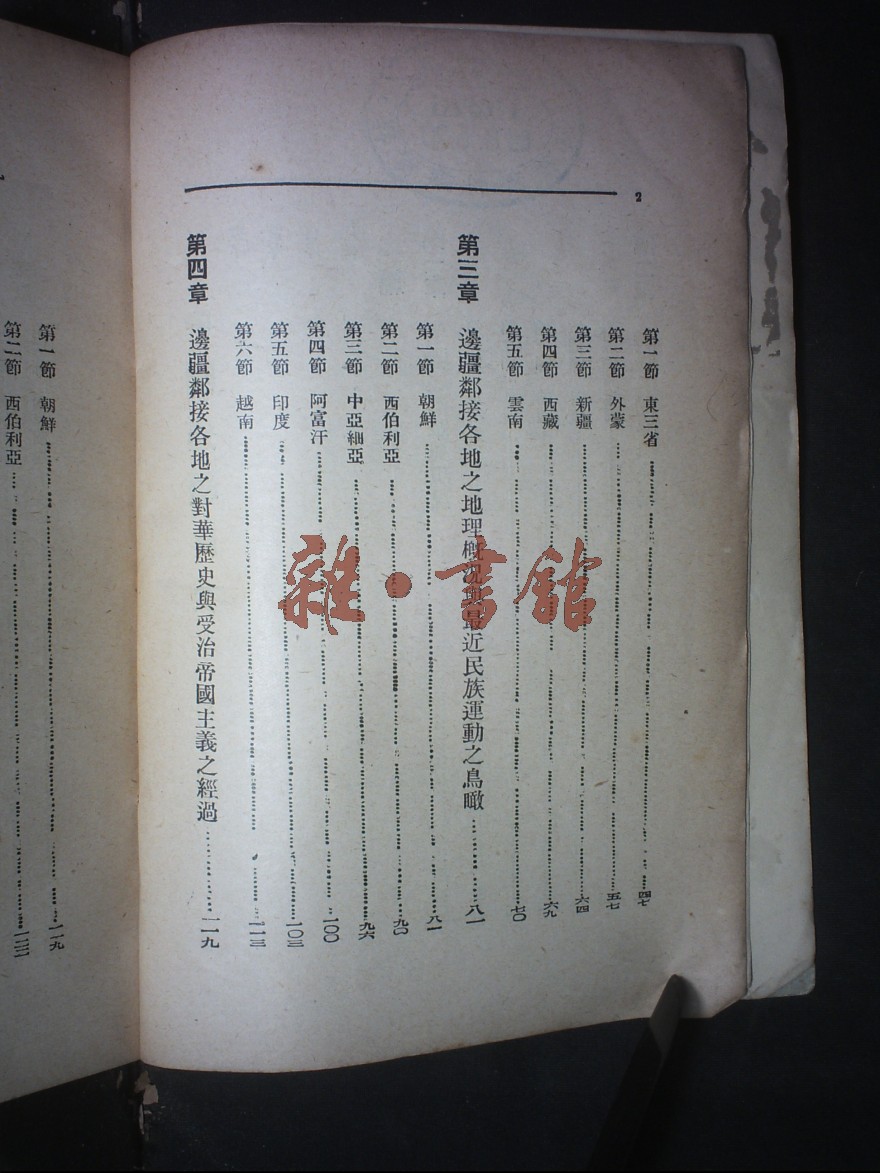 2
第一節 東三省 四七
第二節 外蒙 五七
第三節 新疆 六四
第四節 西藏 六九
第五節 雲南 七〇
第三章 邊疆鄰接各地之地理概況與最近民族運動之鳥瞰 八一
第一節 朝鮮 八一
第二節 西伯利亞 九〇
第三節 中亞細亞 九六
第四節 阿富汗 一〇〇
第五節 印度 一〇三
第六節 越南 一一三
第四章 邊疆鄰接各地之對華歷史與受治帝國主義之經過 一一九
第一節 朝鮮 一一九
第二節 西伯利亞
雜·書館